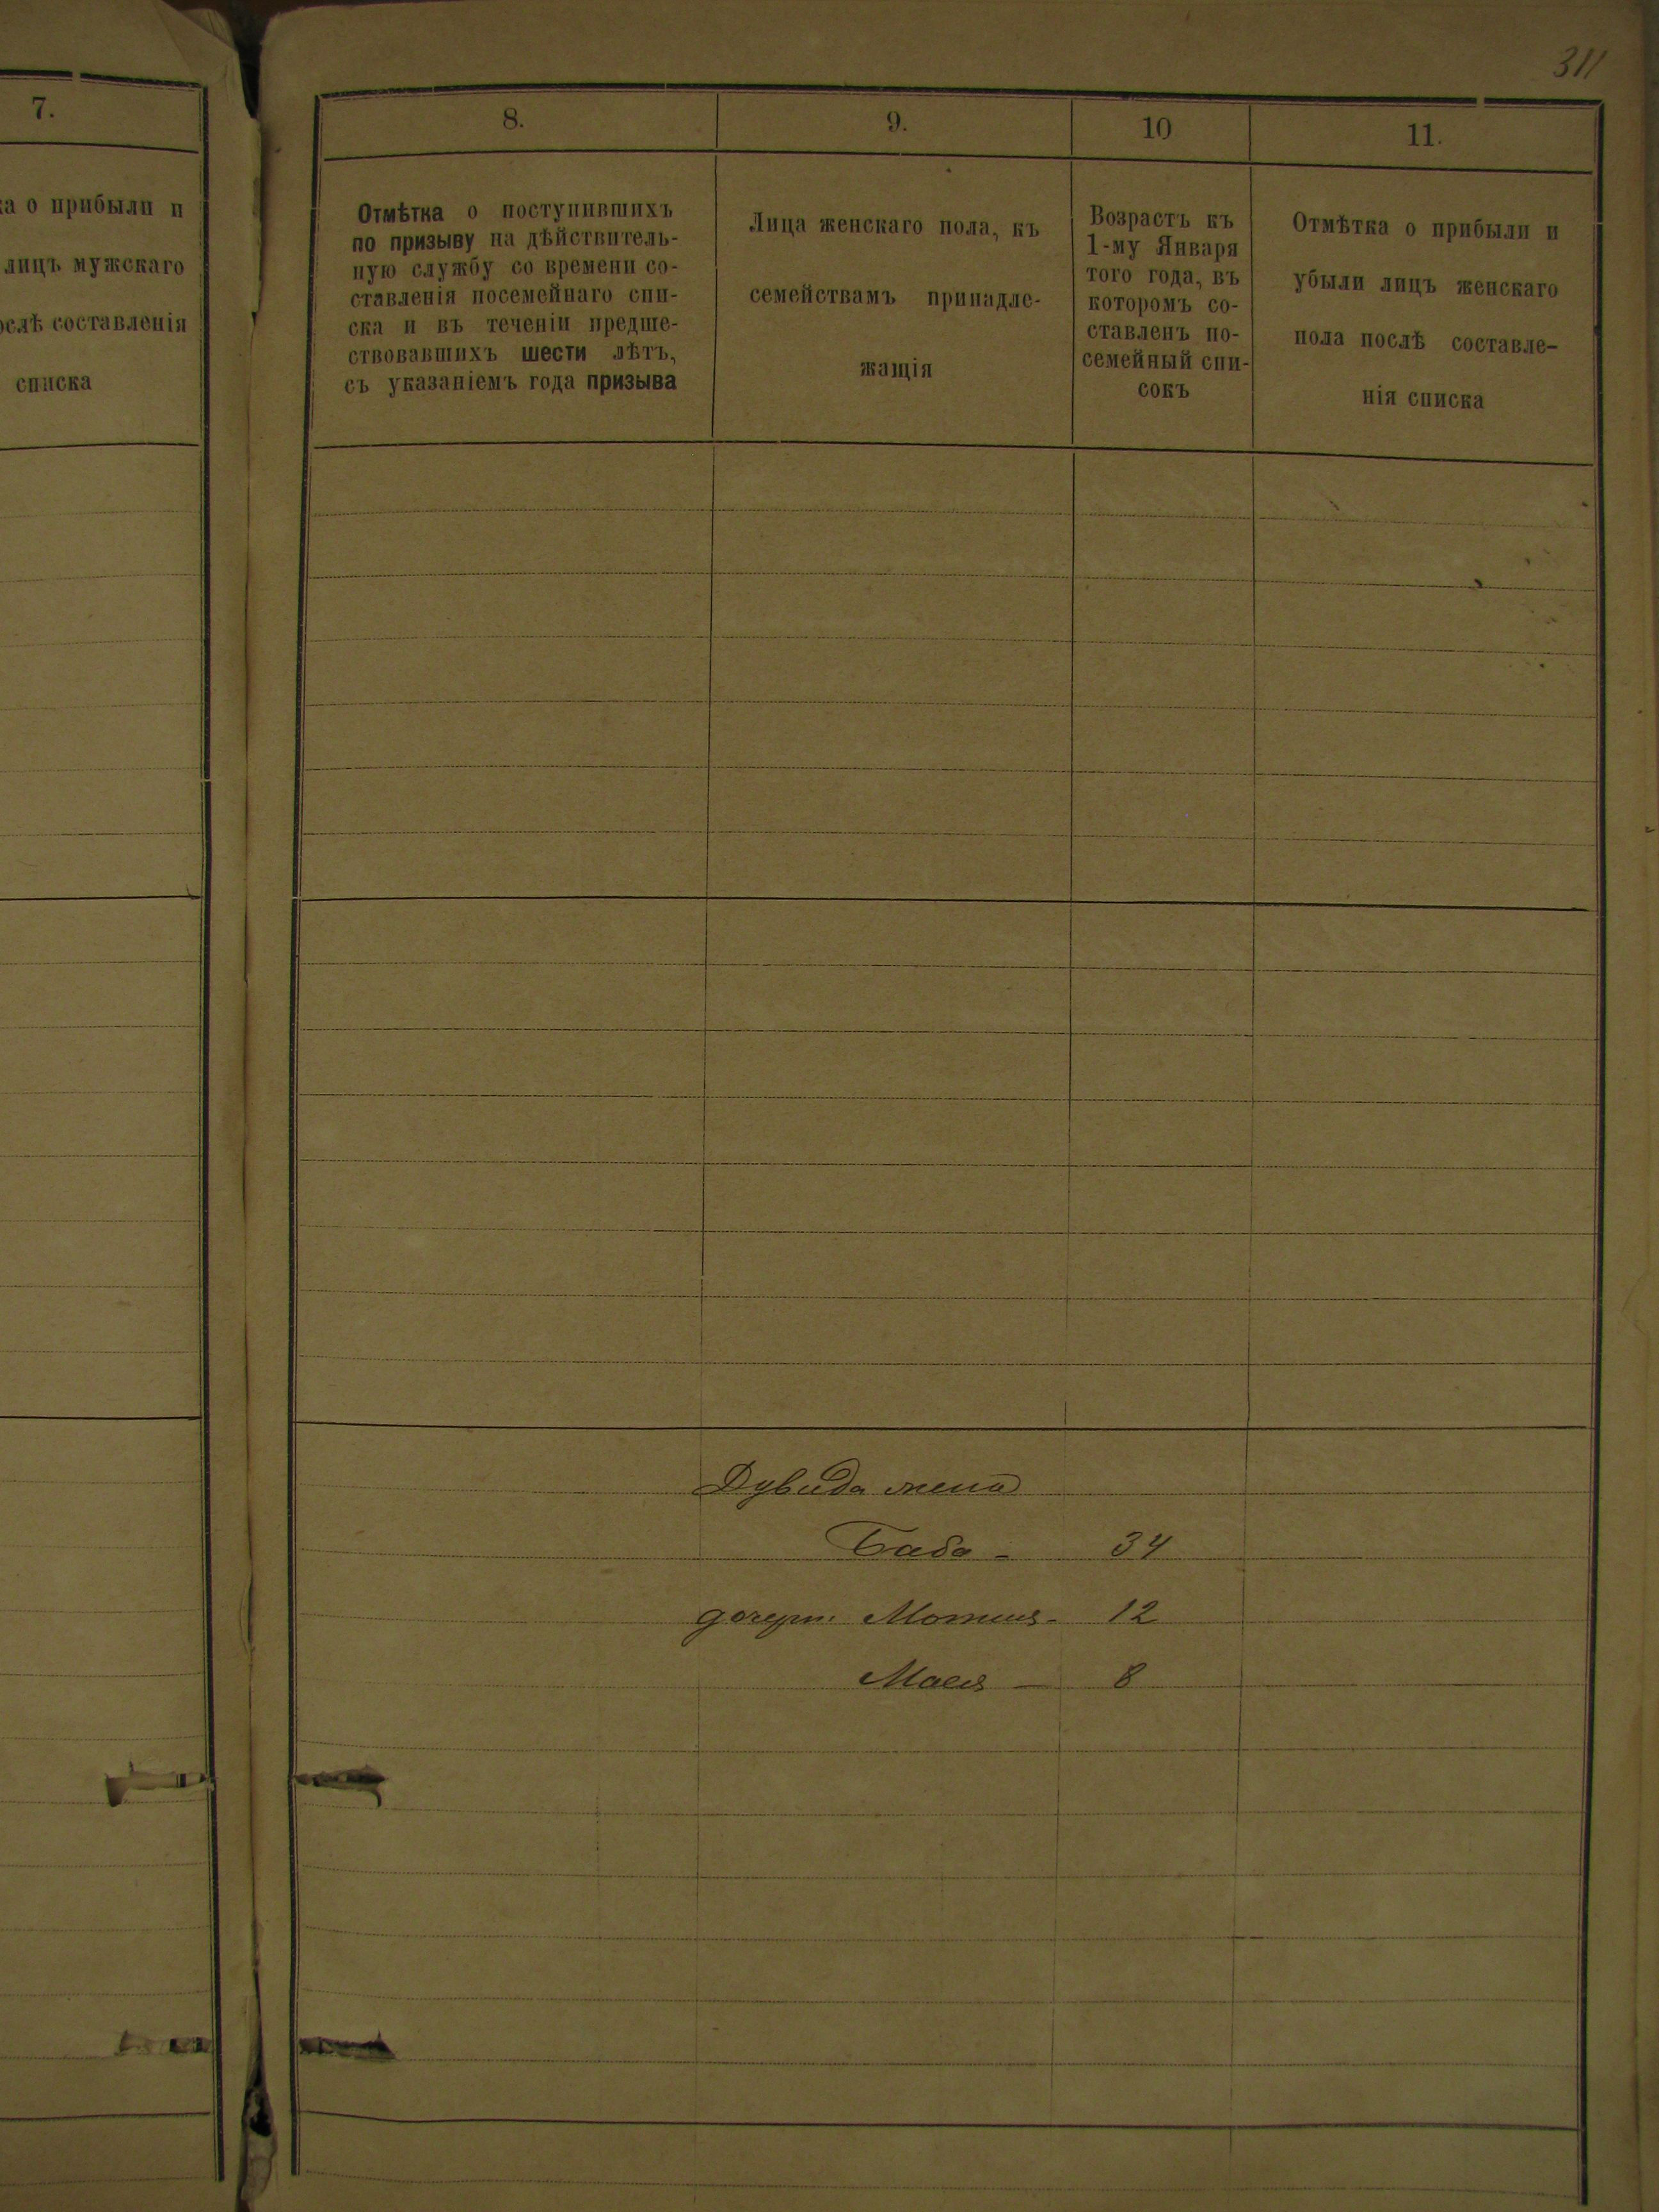 311
7.
ка о прибыли и
лицъ мужскаго
ослѣ составленія
списка
8.
Отмѣтка о поступившихъ
по призыву на дѣйствитель-
ную службу со времени со-
ставленія посемейнаго спи-
ска и въ теченіи предше-
ствовавшихъ шести лѣтъ,
съ указаніемъ года призыва
9.
Лица женскаго пола, къ
семействамъ принадле-
жащія
10
Возрастъ къ
1-му Января
того года, въ
которомъ со-
ставленъ по-
семейный спи-
сокъ
11.
Отмѣтка о прибыли и
убыли лицъ женскаго
пола послѣ составле-
нія списка
Дувида жена
Баба - 34
дочери: 12
Мася — 8